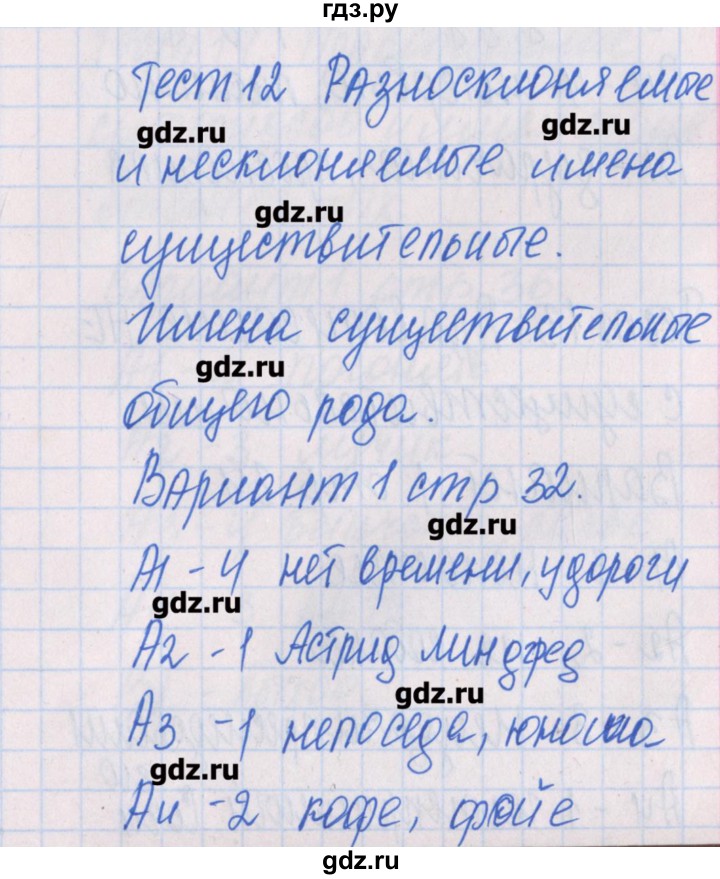 гдз.ру
Тест 12 Разносклоняемые
gdz.ru
gdz.ru
и несклоняемые имена
gdz.ru
существительные.
Имена существительные
gdz.ru
общего рода.
Вариант 1 стр 32.
gdz.ru
А1 - 4 нет времени, у дороги
gdz.ru
А2 - 1 Астрид Линдгред
gdz.ru
А3 - 1 непоседа, юноша
gdz.ru
А4 - 2 кофе, фойе
gdz.ru